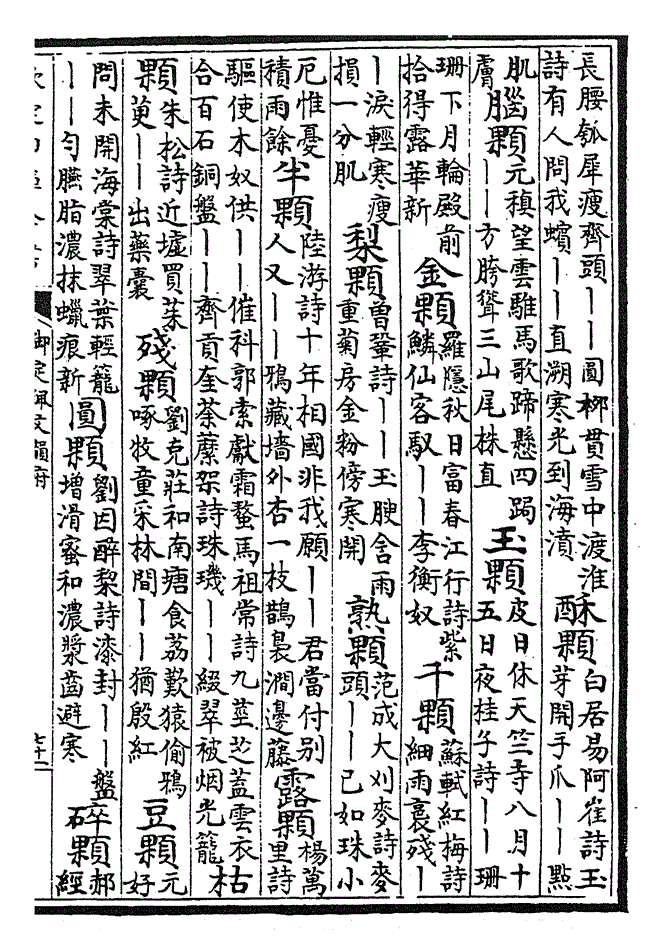 長腰瓠犀瘦齊頭丨丨圓郴貫雪中渡淮
詩有人問我蠙丨丨直溯寒光到海濆
酥顆
白居易阿崔詩玉
芽開手爪丨丨點
肌
膚
腦顆
元稹望雲騅馬歌蹄懸四跼
丨丨方胯聳三山尾株直
玉顆
皮日休天竺寺八月十
五日夜桂子詩丨丨珊
珊下月輪殿前
拾得露華新
金顆
羅隱秋日富春江行詩紫
鱗仙客馭丨丨李衡奴
千顆
蘇軾紅梅詩
細雨裛殘丨
丨淚輕寒瘦
損一分肌
梨顆
曾鞏詩丨丨玉腴含雨
重菊房金粉傍寒開
熟顆
范成大刈麥詩麥
頭丨丨已如珠小
厄惟憂
積雨餘
半顆
陸游詩十年相國非我願丨丨君當付别
人又丨丨鴉藏墻外杏一枝鵲裊澗邊藤
露顆
楊萬
里詩
驅使木奴供丨丨催科郭索獻霜螯馬祖常詩九莖芝蓋雲衣
合百石銅盤丨丨齊貢奎荼蘼架詩珠璣丨丨綴翠被烟光籠
枯
顆
朱松詩近墟買茱
萸丨丨出藥囊
殘顆
劉克莊和南塘食荔歎猿偷鴉
啄牧童采林間丨丨猶殷紅
豆顆
元
好
問未開海棠詩翠葉輕籠
丨丨勻臙脂濃抹蠟痕新
圓顆
劉因醉梨詩漆封丨丨盤
增滑蜜和濃漿齒避寒
碎顆
郝
經
御定佩文韻府